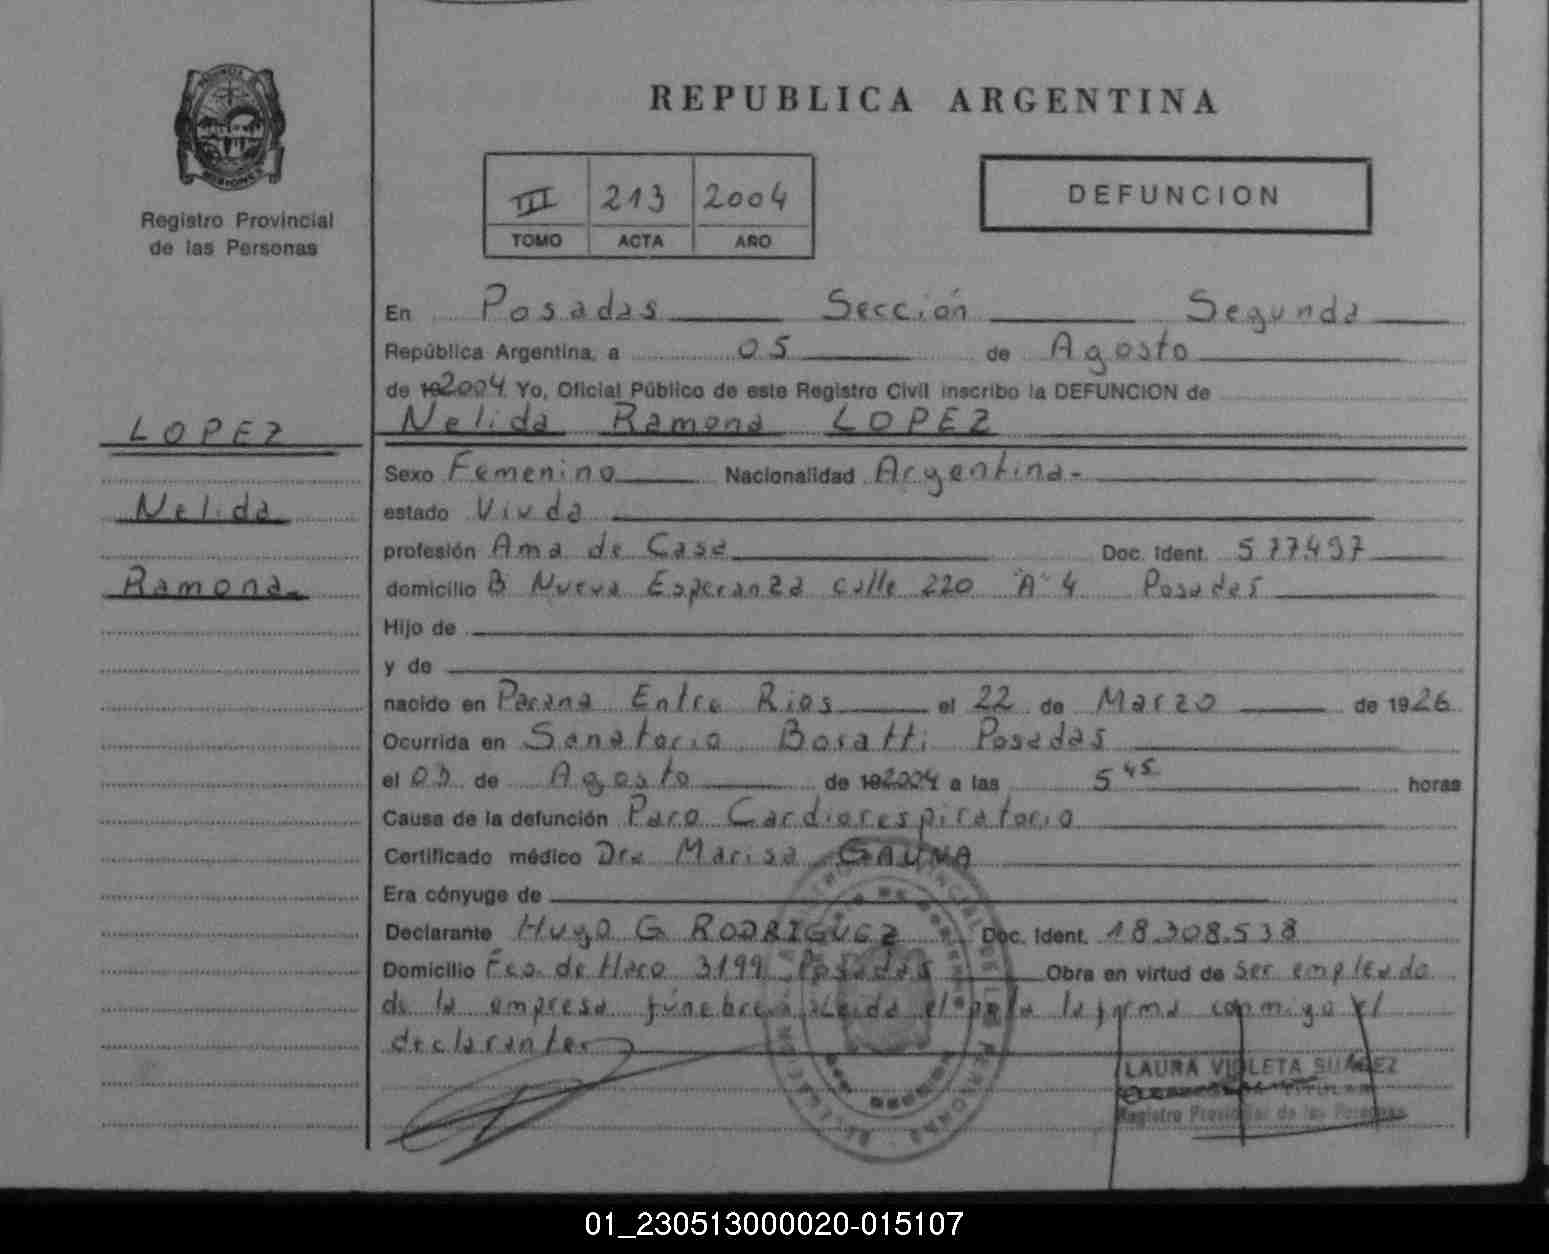 REPUBLICA ARGENTINA
MISIONES
Registro Provincial
de las Personas
III 213 2004
TOMO ACTA AÑO
DEFUNCION
En Posadas Sección Segunda
República Argentina, a 05 de Agosto
de 192004 Yo, Oficial Público de este Registro Civil inscribo la DEFUNCION de
Nelida Ramona LOPEZ
LOPEZ
Nelida
Ramona
Sexo Femenino Nacionalidad Argentina-
estado Viuda
profesión Ama de Casa Doc. Ident. 577497
domicilio B Nueva Esperanza calle 220 "A" 4 Posadas
Hijo de
y de
nacido en Parana Entre Rios el 22 de Marzo de 1926
Ocurrida en Sanatorio Boratti Posadas
el 03 de Agosto de 192004 a las 5 45 horas
Causa de la defunción Paro Cardiorespiratorio
Certificado médico Dra Marisa GAUNA
Era cónyuge de
Declarante Hugo G RODRIGUEZ Doc. Ident. 18.308.538
Domicilio Fco. de Haro 3199 Posadas Obra en virtud de ser empleado
de la empresa fúnebre Leida el acta la firma conmigo el
declarante
LAURA VIOLETA SUAREZ
TITULAR
Registro Provincial de las Personas
01_230513000020-015107